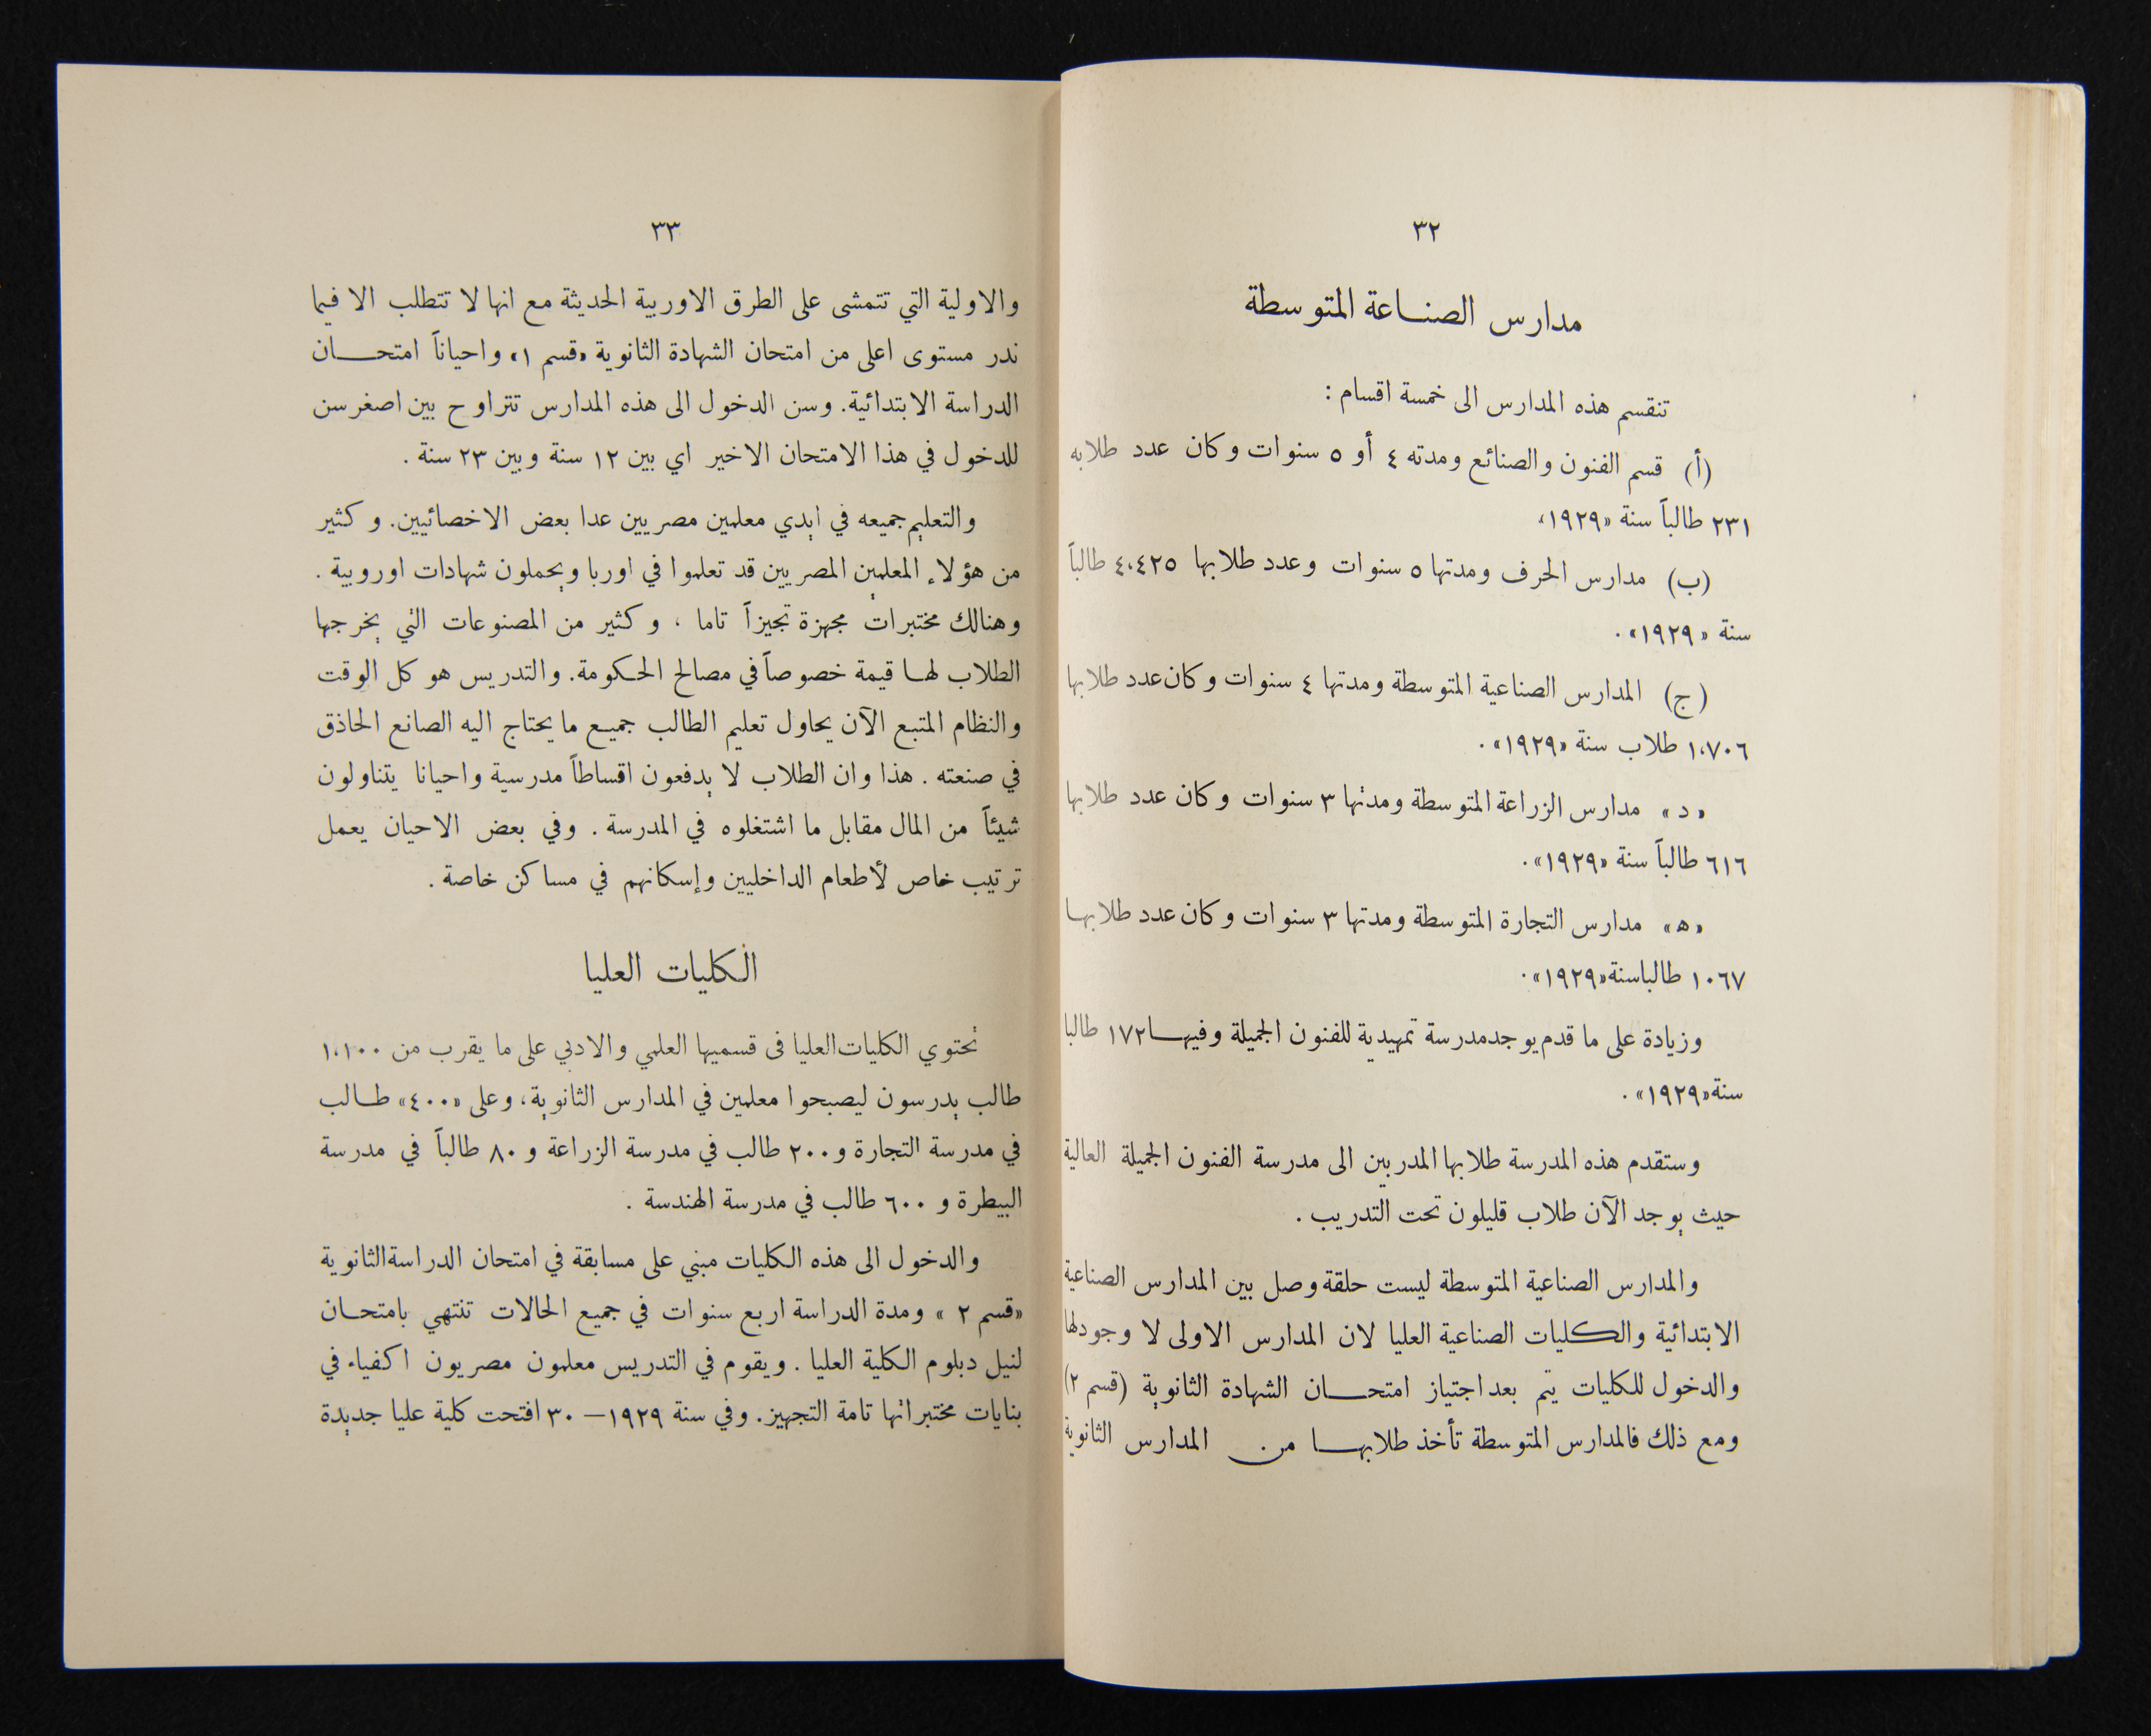 ٣٢
مدارس الصناعة المتوسطة
تنقسم هذه المدارس الى خمسة اقسام :
(أ) قسم الفنون والصنائع ومدته ٤ أو ٥ سنوات وكان عدد طلابه
٢٣١ طالباً سنة «١٩٢٩»
(ب) مدارس الحرف ومدتها ٥ سنوات وعدد طلابها ٤،٤٢٥ طالباً
سنة «١٩٢٩» .
(ج) المدارس الصناعية المتوسطة ومدتها ٤ سنوات وكان عدد طلابها
١،٧٠٦ طلاب سنة «١٩٢٩» .
«د» مدارس الزراعة المتوسطة ومدتها ٣ سنوات وكان عدد طلابها
٦١٦ طالباً سنة «١٩٢٩» .
«ه» مدارس التجارة المتوسطة ومدتها ٣ سنوات وكان عدد طلابها
١٠٦٧ طالبا سنة «١٩٢٩» .
وزيادة على ما قدم يوجد مدرسة تمهيدية للفنون الجميلة وفيها ١٧٢ طالبا
سنة «١٩٢٩» .
وستقدم هذه المدرسة طلابها المدربين الى مدرسة الفنون الجميلة العالية
حيث يوجد الآن طلاب قليلون تحت التدريب .
والمدارس الصناعية المتوسطة ليست حلقة وصل بين المدارس الصناعية
الابتدائية والكليات الصناعية العليا لان المدارس الاولى لا وجود لها
والدخول للكليات يتم بعد اجتياز امتحان الشهادة الثانوية (قسم ٢)
ومع ذلك فالمدارس المتوسطة تأخذ طلابها من المدارس الثانوية
٣٣
والاولية التي تتمشى على الطرق الاوربية الحديثة مع انها لا تتطلب الا فيما
ندر مستوى اعلى من امتحان الشهادة الثانوية «قسم ١» واحياناً امتحان
الدراسة الابتدائية. وسن الدخول الى هذه المدارس تتراوح بين اصغر سن
للدخول في هذا الامتحان الاخير اي بين ١٢ سنة وبين ٢٣ سنة .
والتعليم جميعه في ايدي معلمين مصريين عدا بعض الاخصائيين. وكثير
من هؤلاء المعلمين المصريين قد تعلموا في اوربا ويحملون شهادات اوروبية .
وهنالك مختبرات مجهزة تجيزاً تاما ، وكثير من المصنوعات التي يخرجها
الطلاب لها قيمة خصوصاً في مصالح الحكومة. والتدريس هو كل الوقت
والنظام المتبع الآن يحاول تعليم الطالب جميع ما يحتاج اليه الصانع الحاذق
في صنعته . هذا وان الطلاب لا يدفعون اقساطاً مدرسية واحيانا يتناولون
شيئاً من المال مقابل ما اشتغلوه في المدرسة . وفي بعض الاحيان يعمل
ترتيب خاص لأطعام الداخليين وإسكانهم في مساكن خاصة .
الكليات العليا
تحتوي الكليات العليا في قسميها العلمي والادبي على ما يقرب من ١،١٠٠
طالب يدرسون ليصبحوا معلمين في المدارس الثانوية، وعلى «٤٠٠» طالب
في مدرسة التجارة و٢٠٠ طالب في مدرسة الزراعة و ٨٠ طالباً في مدرسة
البيطرة و ٦٠٠ طالب في مدرسة الهندسة .
والدخول الى هذه الكليات مبني على مسابقة في امتحان الدراسة الثانوية
«قسم ٢» ومدة الدراسة اربع سنوات في جميع الحالات تنتهي بامتحان
لنيل دبلوم الكلية العليا . ويقوم في التدريس معلمون مصريون اكفياء في
بنايات مختبراتها تامة التجهيز. وفي سنة ١٩٢٩ – ٣٠ افتحت كلية عليا جديدة